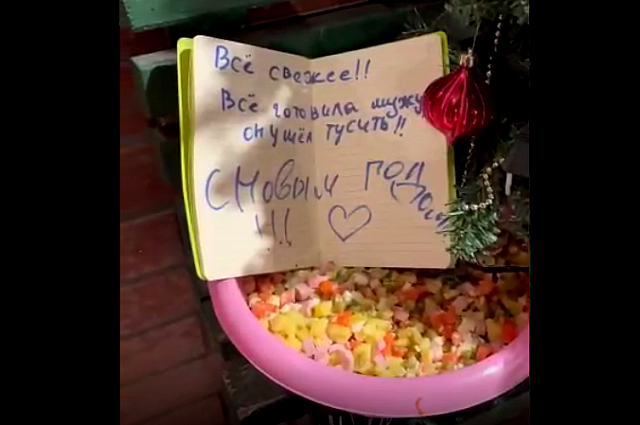 Всё свежее!!
Всё готовила мужу
он ушёл тусить!!
С Новым годом
!!!